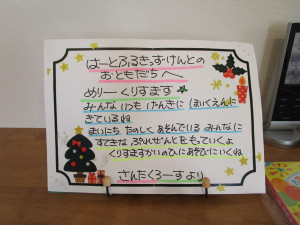 はーとふるきっずけんとの
おともだちへ
めりーくりすます
みんな いつも げんきに ほいくえんに
きているね
まいにち たのしく あそんでいる みんなに
すてきな ぷれぜんとを もっていくよ
くりすますかいのひに あそびにいくね
さんたくろーすより